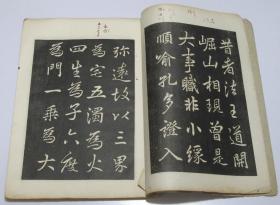 昔者法王道開
崛山相現曾是
大事職非小緣
順喻孔多證入
弥遠故以三界
為宅五濁為火
四生為子六度
為門一乗為大